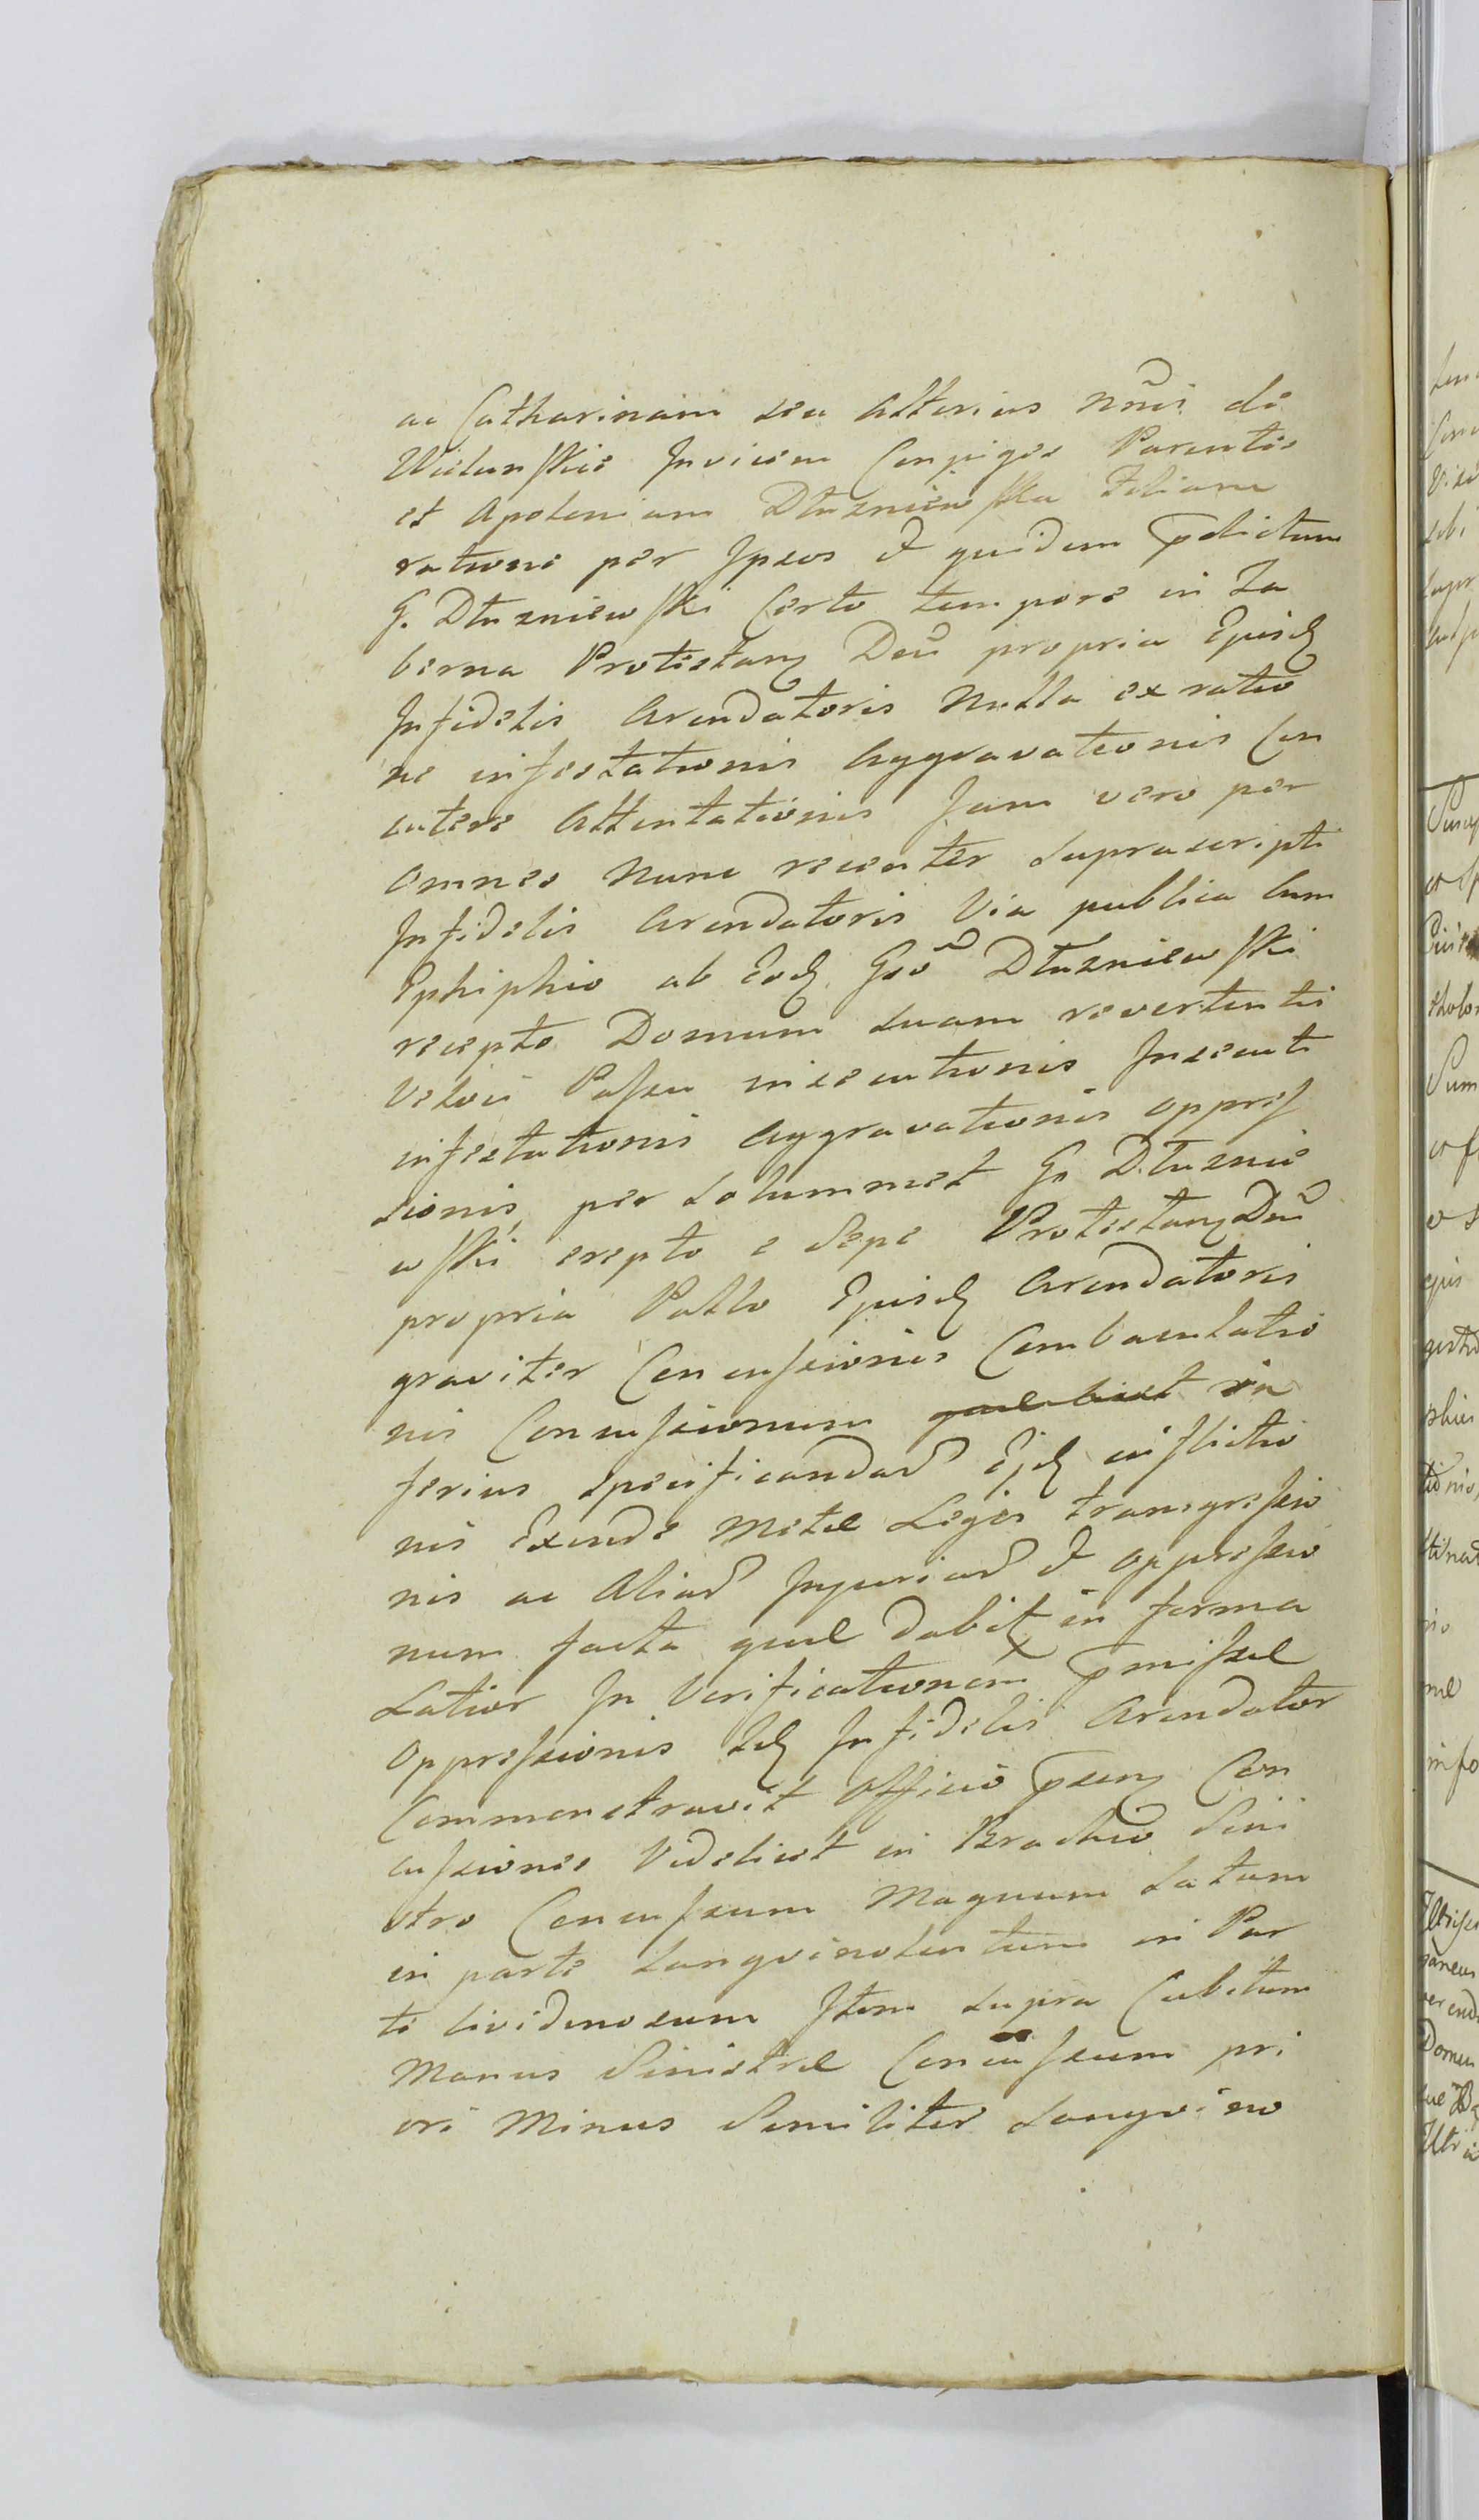 ac Catharinam seu alterius nñis de
Wielunskie Invicem Conjuges Parentes
et Apoleniam Dłuzniewska Filiam
ratione per Ipsos et quidem p̄dictum
G. Dłuzniewski Certo tempore in Ta
berna Protestan Dñi propria Ejusd
Infidelis Arendatoris Nulla ex ratio
ne infestationis Aggravationis Con
cutere Attentationis Jam vero per
omnes Nunc recenter supra scripti
Infidelis Arendatoris Via publica Cum
Ephiphio ab Eod Gso Dłuzniewski
recepto Domum suam revertenti
Veloci Passu insecutionis Insecuti
infestationis Aggravationis oppres
sionis per solummet G. Dłuznie
wski erepto e Sepe Protestan Dñi
propria Pallo Ejusd Arendatoris
graviter Concussionis Combaculatio
nis Concussionum in
ferius specificandar Ejd inflictio
nis Exinde Metae Legis transgressio
nis ac Aliar Injuriar et oppressio
num facta quae dabit in forma
Latior In Verificationem p̄missae
oppressionis Id Infidelis Arendator
Commonstravit officio p̄sen Con
cussiones Videlicet in Brachio Sini
stro Concussum Magnum Latum
in parte Sangvinolentum in Par
te lividinosum Item supra Cubitum
Manus Sinistrae Concussum pri
ori Minus Similiter Sangvino